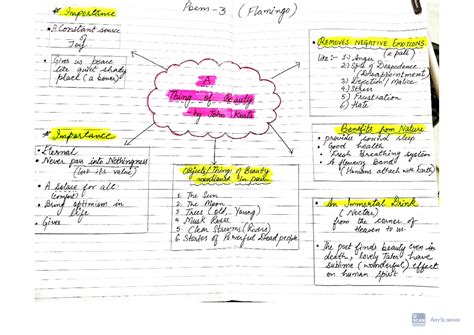 Poem-3 (Flamingo)
# Importance
• A Constant source
of
Joy
• Gives us peace
like quiet shady
place (a bower)
A
Thing of Beauty
- by John Keats
REMOVES NEGATIVE EMOTIONS
(a pall)
Like :- 1) Anger
2) State of Despondence
(Disappointment)
3) Dejection / Malice
4) Stress
5) Frustration
6) Hate
# Importance
• Eternal
• Never pass into Nothingness
(lose its value)
• A solace for all
(comfort)
• Bring optimism in
life
• Gives
Objects/Things of Beauty
mentioned in Poem
1. The Sun
2. The Moon
3. Trees (Old, Young)
4. Musk Roses
5. Clear Streams (Rivers)
6. Stories of Powerful Dead people
Benefits from Nature
• provides sound sleep
• Good health
• Fresh Breathing system
• A flowery band
(Humans attach with Earth)
• An Immortal Drink
(Nectar)
from the corner of
Heaven to us.
• The poet finds beauty even in
death, lovely Tales have
sublime (wonderful) effect
on human spirit
AnyScanner